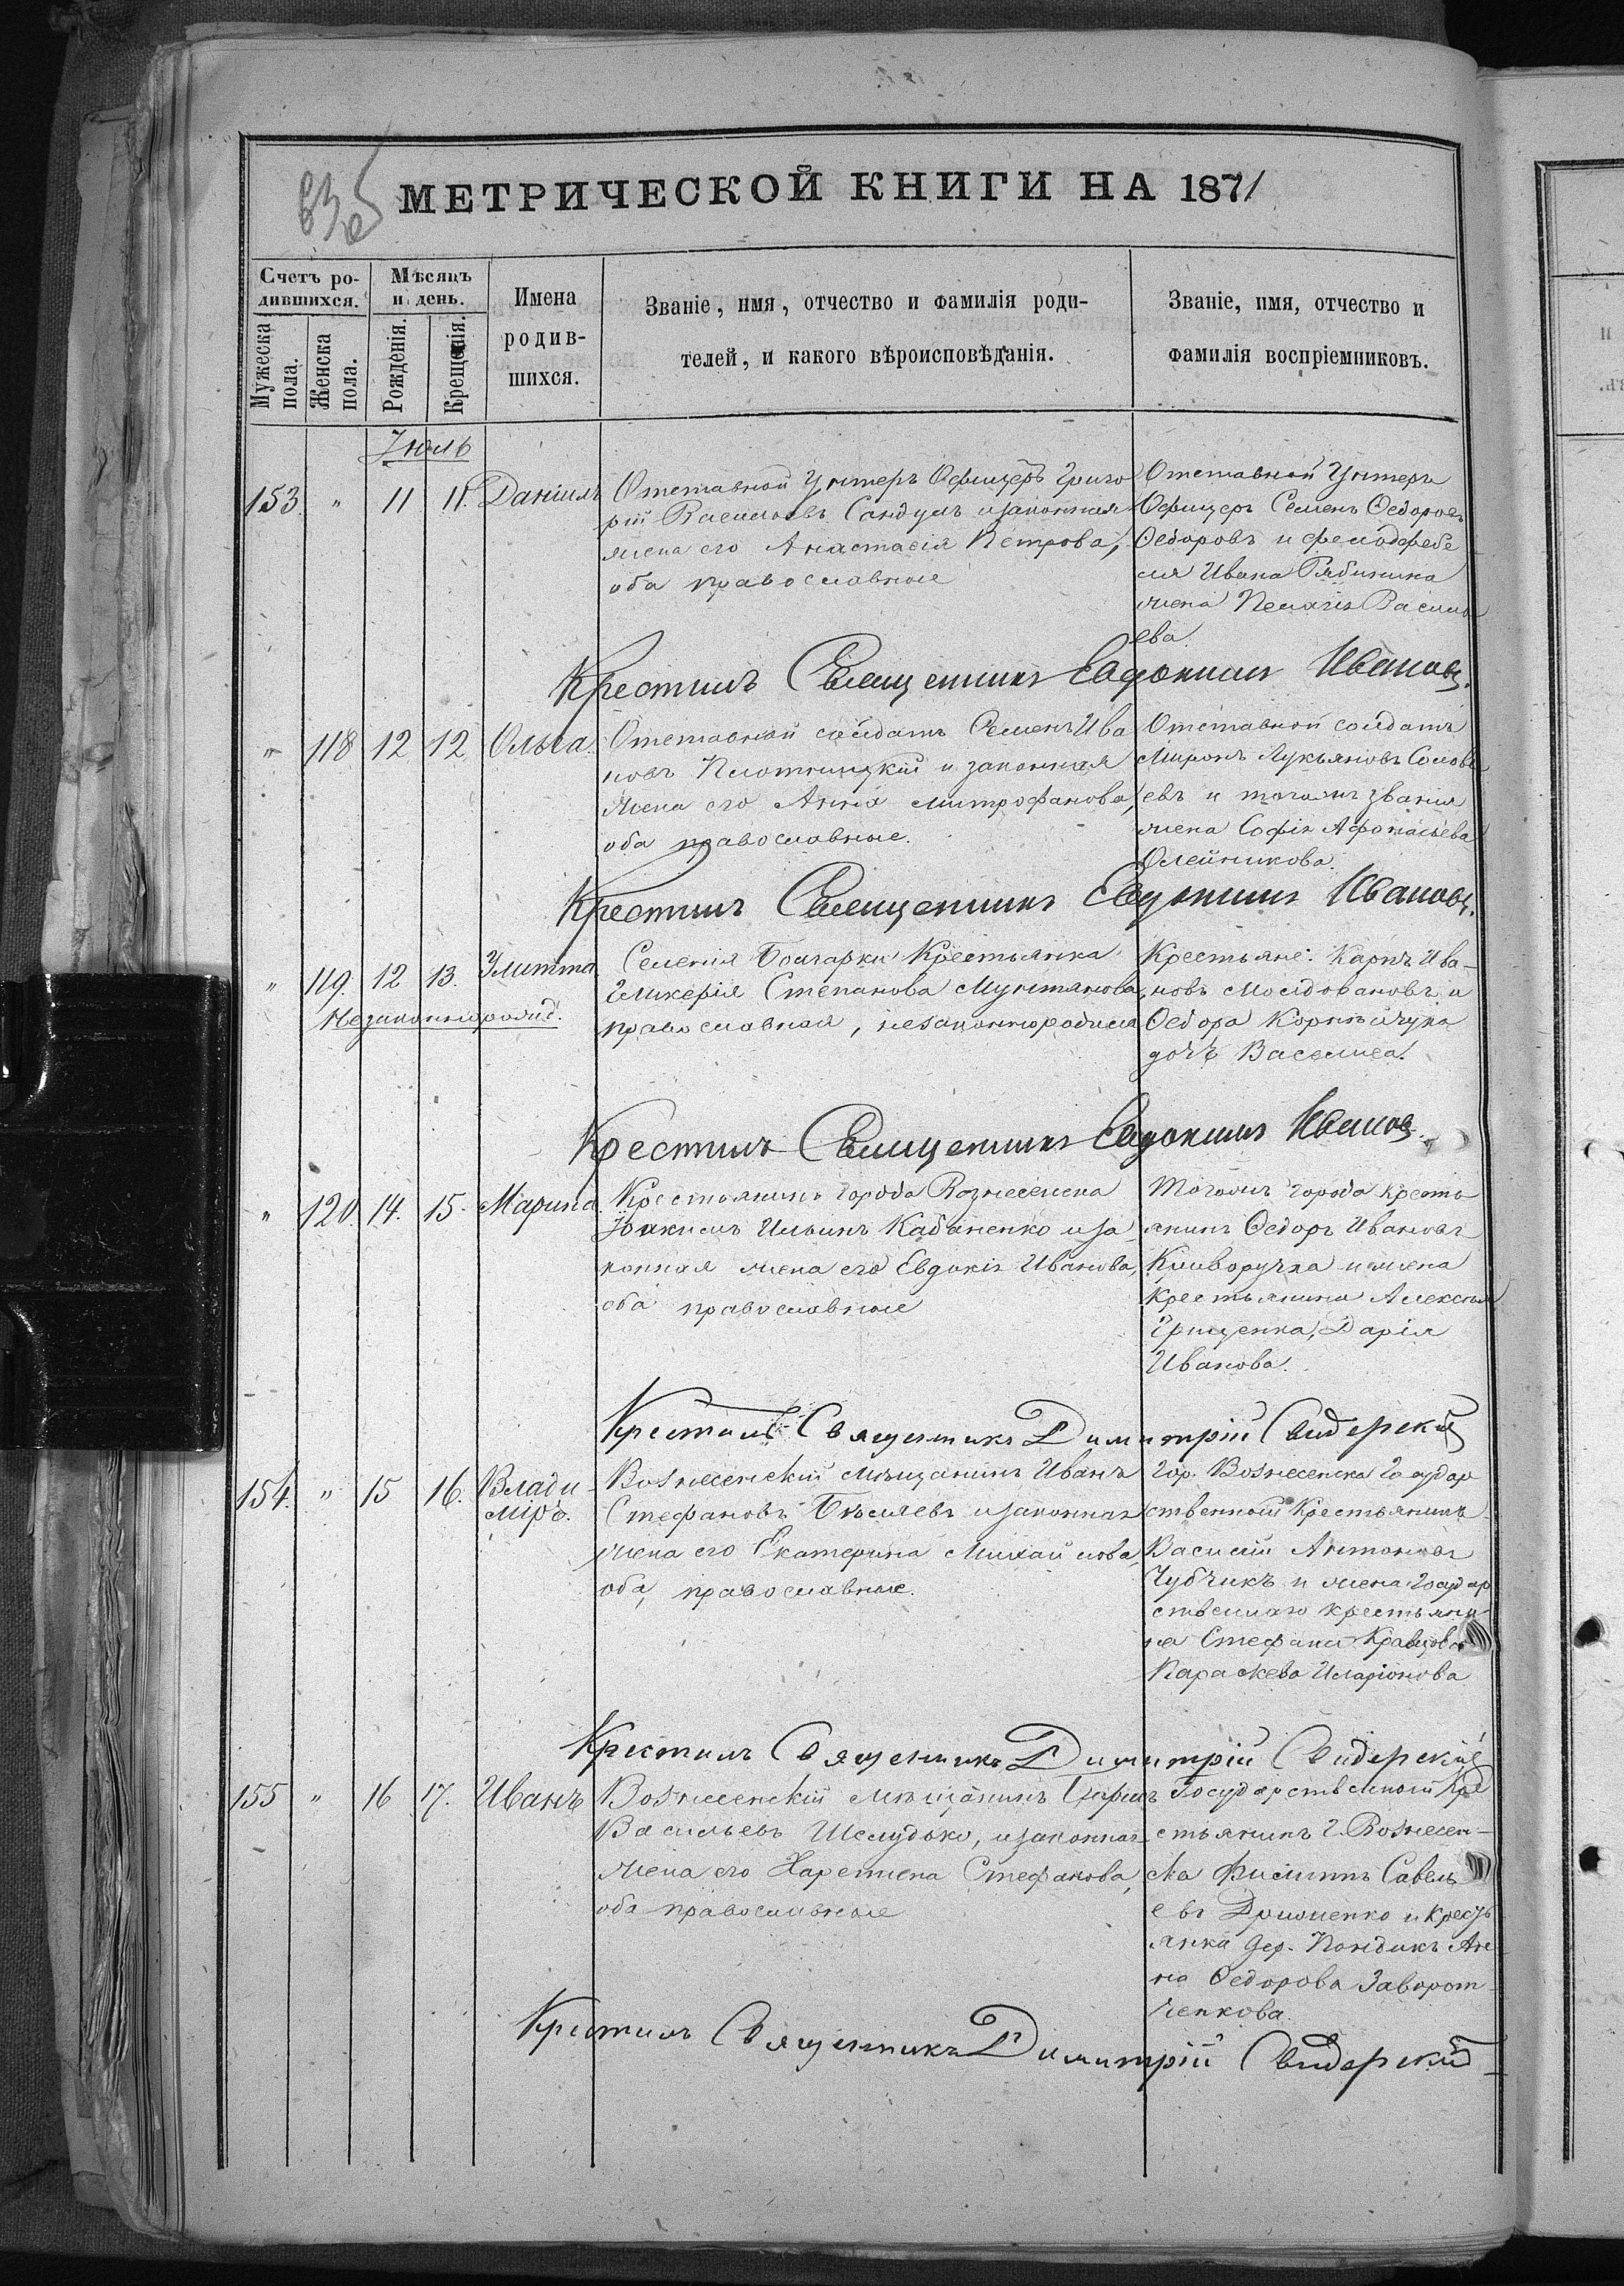 МЕТРИЧЕСКОЙ КНИГИ НА 1871
Счетъ ро-
дившихся.
Мѣсяцъ
и день.
Имена
родив-
шихся.
Званіе, имя, отчество и фамилія роди-
телей, и какого вѣроисповѣданія.
Званіе, имя, отчество и
фамилія воспріемниковъ.
Мужеска
пола.
Женска
пола.
Рожденія.
Крещенія.
Іюль
153. " 11 11. Даніилъ
Отставной Унтеръ Офицеръ Григо
рій Васильевъ Сандулъ и законная
жена его Анастасія Петрова,
оба православные
Отставной Унтеръ
Офицеръ Семенъ Ѳедоровъ
Ѳедоровъ и фельдфебе
ля Ивана Рябинина
жена Пелагія Василь
ева.
Крестилъ Священникъ Евдокимъ Ивановъ.
" 118 12 12 Ольга.
Отставной солдатъ Семенъ Ива
новъ Плотницкій и законная
жена его Анна Митрофанова,
оба православные.
Отставной солдатъ
Миронъ Лукьяновъ Солов
евъ и тогожъ званія
жена Софія Афонасьева
Олейникова.
Крестилъ Священникъ Евдокимъ Ивановъ.
" 119. 12 13. Улитта
Незаконнорожд.
Селенія Болгарки Крестьянка
Гликерія Степанова Мунтянова,
православная, незаконнородила
Крестьяне: Карпъ Ива-
новъ Молдовановъ и
Ѳедора Корнѣйчука
дочь Василиса.
Крестилъ Священникъ Евдокимъ Ивановъ.
" 120. 14. 15. Марина
Крестьянинъ города Вознесенска
Іоакимъ Ильинъ Кабаненко и за
конная жена его Евдокія Иванова,
оба православные
Тогожъ города кресть
янинъ Ѳедоръ Ивановъ
Криворучка и жена
Крестьянина Алексѣя
Грищенка, Дарія
Иванова.
Крестилъ Священникъ Димитрій Свидерскій
154. " 15 16. Влади-
міръ.
Вознесенскій мѣщанинъ Иванъ
Стефановъ Бѣляевъ и законная
жена его Екатерина Михайлова
оба, православные.
Гор. Вознесенска Государ
ственный Крестьянинъ
Василій Антоновъ
Чубчикъ и жена Государ
ственнаго крестьяни
на Стефана Кравцова
Параскева Иларіонова
Крестилъ Священникъ Димитрій Свидерскій
155 " 16 17. Иванъ
Вознесенскій мѣщанинъ
Васильевъ Шелудько, и законная
жена его Харетина Стефанова,
оба православные
Государственный Кре
стьянинъ г. Вознесен-
ска Филиппъ Савель
евъ и кресть
янка дер. Ан
на Ѳедорова Заворот
ченкова.
Крестилъ Священникъ Димитрій Свидерскій